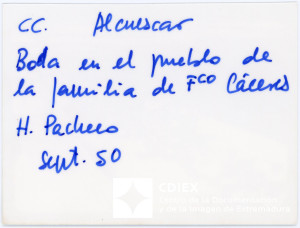 CC. Alcuescar
Boda en el pueblo de
la familia de Fco Cáceres
H. Pacheco
Sept. 50
CDIEX